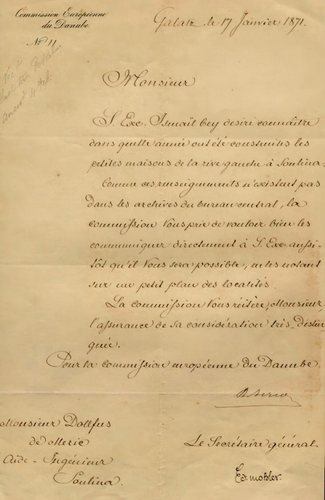 Commission Européenne
du Danube.
Galatz, le 17 Janvier 1871.
No 11
Monsieur
S. Exc. Ismaïl bey désire connaître
dans quelle année ont été construites les
petites maisons de la rive gauche à Soulina.
Comme ces renseignements n'existent pas
dans les archives du bureau central, la
commission Vous prie de vouloir bien les
communiquer directement à S. Exc. aussi-
tôt qu'il Vous sera possible, en les notant
sur un petit plan des localités.
La commission Vous réitère, Monsieur,
l'assurance de sa considération très-distin
guée.
Pour la commission européenne du Danube.
Monsieur Dollfus
Aide-Ingénieur
Soulina
Le Secrétaire général.
Ed. Mohler.